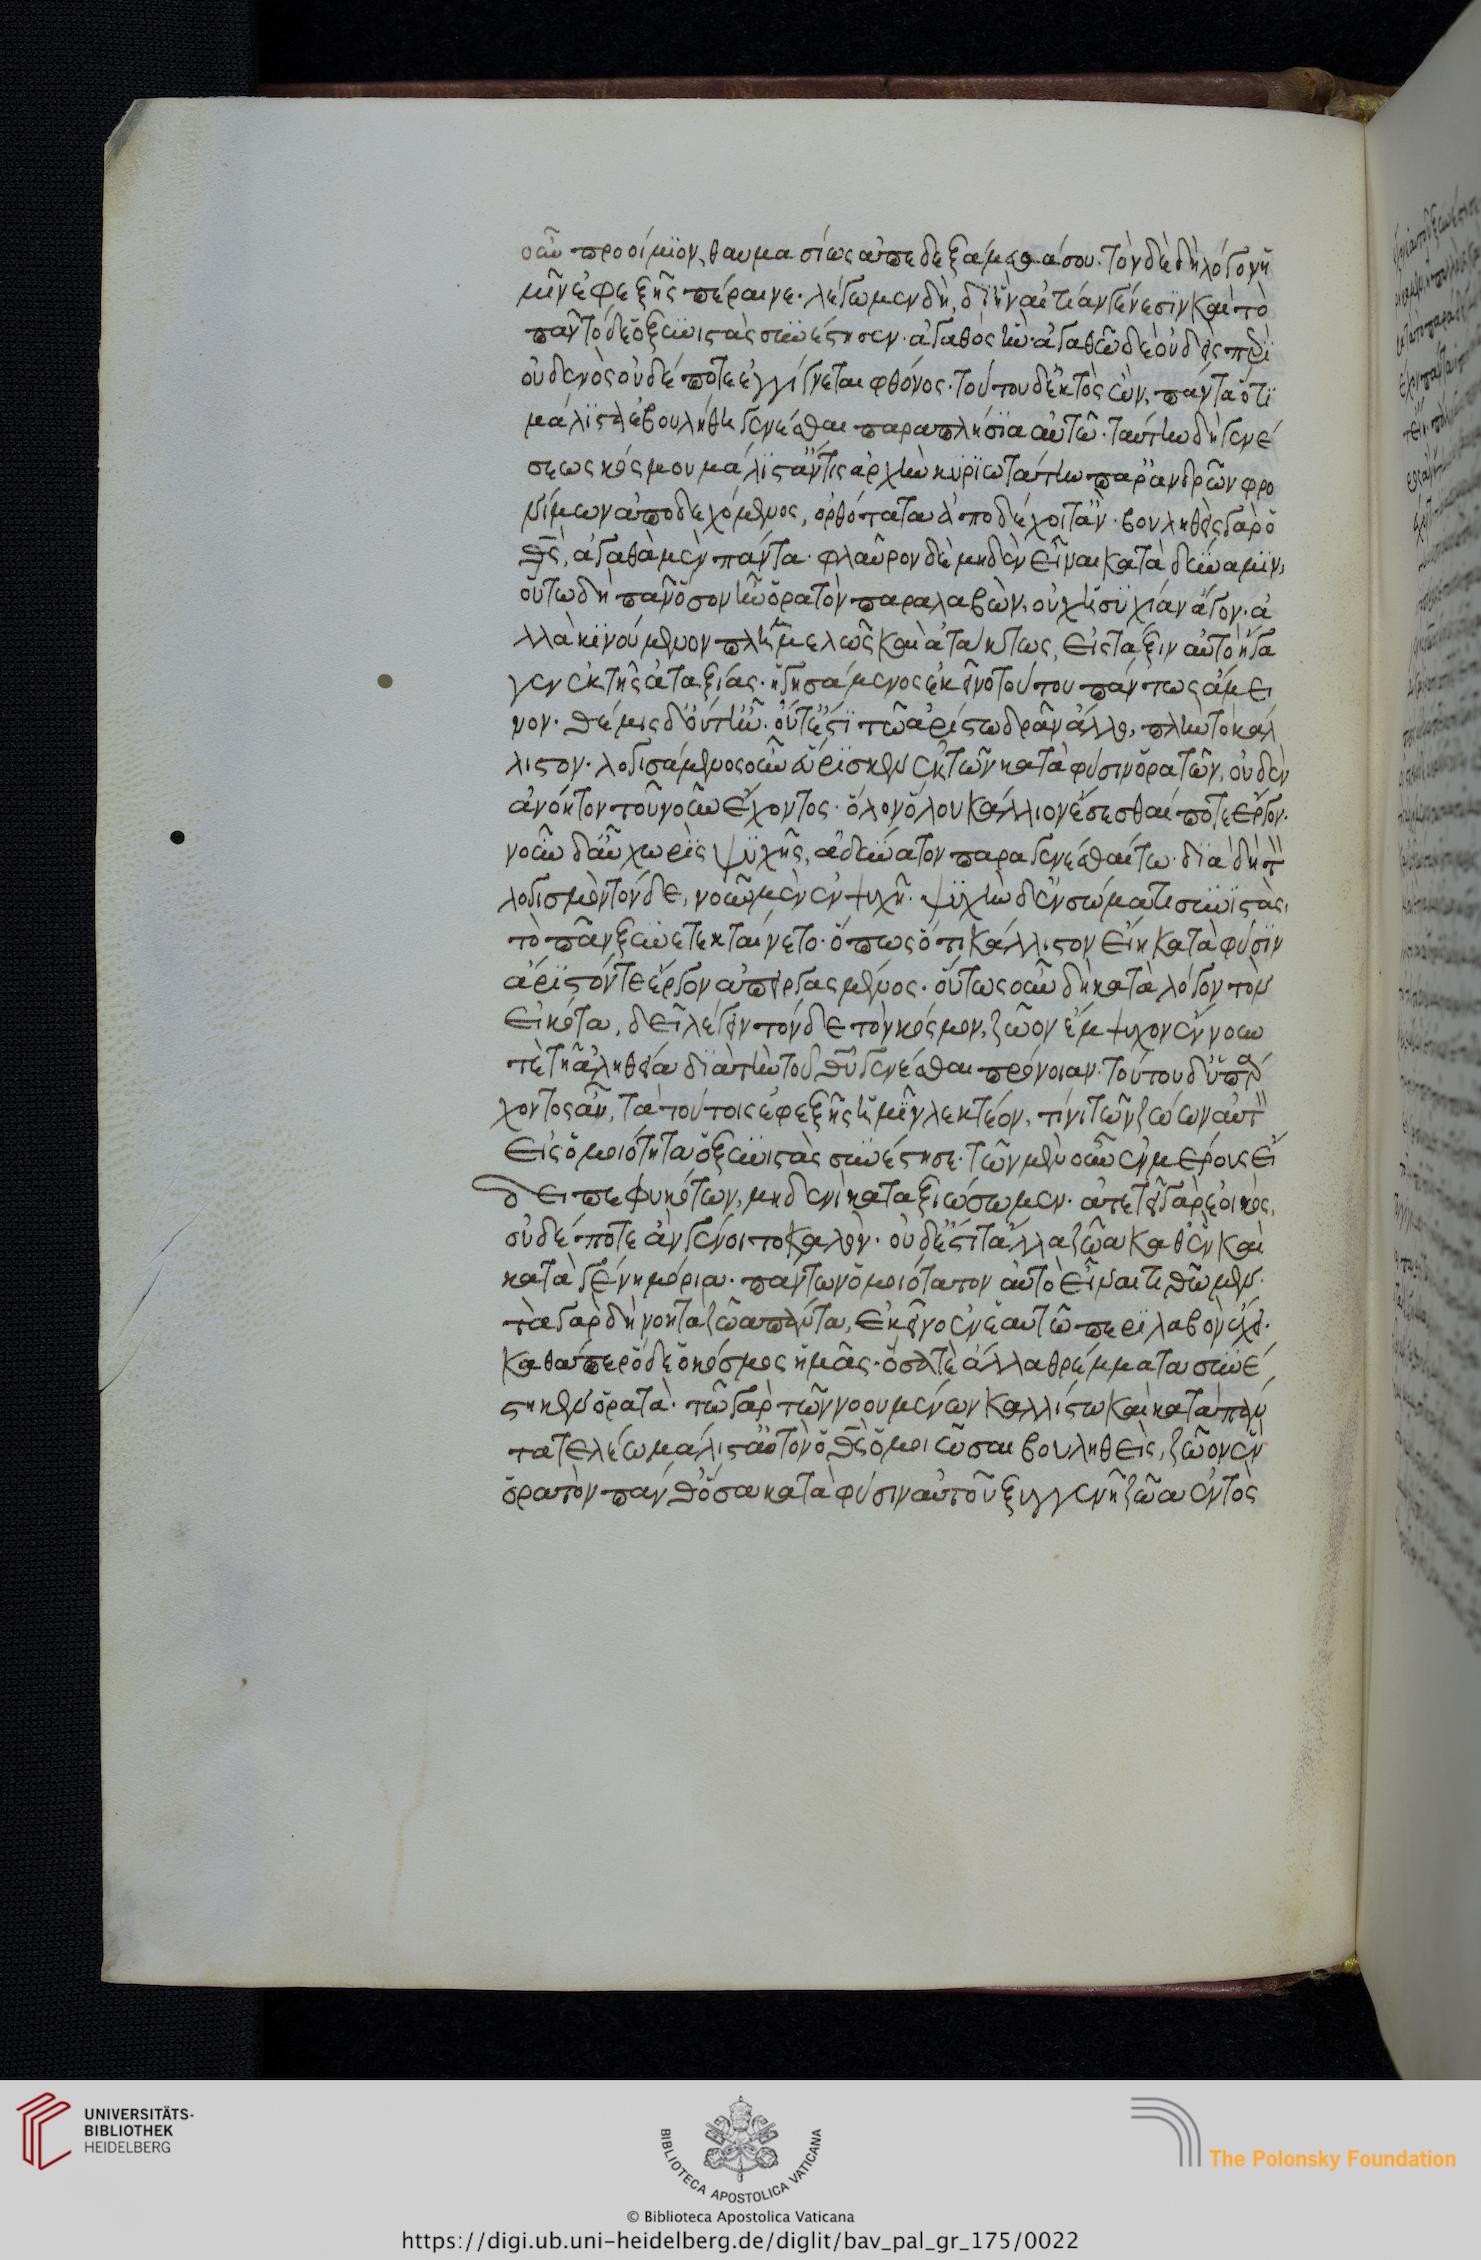 οὖν προοίμϊον, θαυμασίως ἀπεδεξάμεθά σου. τὸν δὲ δὴ λόγον ἡ
μῖν ἐφεξῆς πέραινε. λέγωμεν δὴ, δι ἣν αἰτίαν γένεσϊν καὶ τὸ
πᾶν τόδε ὁ ξυνιστὰς συνέστησεν. ἀγαθὸς ἦν. ἀγαθῶ δὲ οὐδεὶς περὶ
οὐδενὸς οὐδέποτε ἐγγίγνεται φθόνος. τούτου δ' ἐκτὸς ὢν, πάντα ὅτϊ
μάλϊστα ἐβουλήθη γενέσθαι παραπλήσϊα αὑτῶ. ταύτην δὴ γενέ
σεως κόσμου μάλϊστ' ἄν τις ἀρχὴν κυρϊωτάτην παρ' ἀνδρῶν φρο
νίμων ἀποδεχόμενος, ὀρθότατα ἀποδέχοιτ' ἄν. βουληθεὶς γὰρ ὁ
θς, ἀγαθὰ μὲν πάντα. φλαῦρον δὲ μηδὲν εἶναι κατὰ δύναμϊν,
οὕτω δὴ πᾶν ὅσον ἦν ὁρατὸν παραλαβὼν, οὐχ ἡσϋχίαν ἄγον. ἀ
λλὰ κϊνούμενον πλημμελῶς καὶ ἀτάκτως, εἰς τάξιν αὐτὸ ἤγα
γεν ἐκ τῆς ἀταξίας. ἡγησάμενος ἐκεῖνο τούτου πάντως ἄμει
νον. θέμις δ' οὔτ' ἦν. οὔτ' ἔστϊ τῶ ἀρίστω δρᾶν ἄλλο, πλὴν τὸ κάλ
λιστον. λογισάμενος οὖν εὕρϊσκεν ἐκ τῶν κατὰ φύσιν ὁρατῶν, οὐδὲν
ἀνόητον τοῦ νοῦν ἔχοντος. ὅλον ὅλου κάλλιον ἔσεσθαί ποτε ἔργον.
νοῦν δ' αὖ χωρὶς ψϋχῆς, ἀδύνατον παραγενέσθαι τω. δϊὰ δὴ τὸν
λογισμὸν τόνδε, νοῦν μὲν ἐν ψυχῆ. ψϋχὴν δ' ἐν σώματι συνϊστὰς,
τὸ πᾶν ξυνετεκταίνετο. ὅπως ὅτι κάλλιστον εἴη κατὰ φύσϊν
ἄρϊστόν τε ἔργον ἀπειργασμένος. οὕτως οὖν δὴ κατὰ λόγον τὸν
εἰκότα, δεῖ λέγειν τόνδε τὸν κόσμον, ζῶον ἔμψυχον ἔννουν
τε τῆ ἀληθεία δϊὰ τὴν τοῦ θυ γενέσθαι πρόνοιαν. τούτου δ' ὑπάρ
χοντος αὖ, τὰ τούτοις ἐφεξῆς ἡμῖν λεκτέον, τίνι τῶν ζώων αὐτὸν
εἰς ὁμοιότητα ὁ ξυνϊστὰς συνέστησε. τῶν μὲν οὖν ἐν μέρους εἴ
δει πεφυκότων, μηδενὶ καταξιώσωμεν. ἀτελεῖ γὰρ ἐοικὸς,
οὐδέποτε ἂν γένοιτο καλόν. οὗ δ' ἔστι τἄλλα ζῶα καθ' ἓν καὶ
κατὰ γένη μόρια. πάντων ὁμοιότατον αὐτὸ εἶναι τιθῶμεν.
τὰ γὰρ δὴ νοητὰ ζῶα πάντα, ἐκεῖνο ἐν ἑαυτῶ περϊλαβὸν ἔχει.
καθάπερ ὅδε ὁ κόσμος ἡμᾶς. ὅσα τε ἄλλα θρέμματα συνέ
στηκεν ὁρατά. τῶ γὰρ τῶν νοουμένων καλλίστω καὶ κατὰ πάν
τα τελέω μάλιστα αὐτὸν ὁ θς ὁμοιῶσαι βουληθεὶς, ζῶον ἓν
ὁρατὸν πάνθ' ὅσα κατὰ φύσιν αὐτοῦ ξυγγενῆ ζῶα ἐντὸς
UNIVERSITÄTS-
BIBLIOTHEK
HEIDELBERG
BIBLIOTECA APOSTOLICA VATICANA
The Polonsky Foundation
© Biblioteca Apostolica Vaticana
https://digi.ub.uni-heidelberg.de/diglit/bav_pal_gr_175/0022